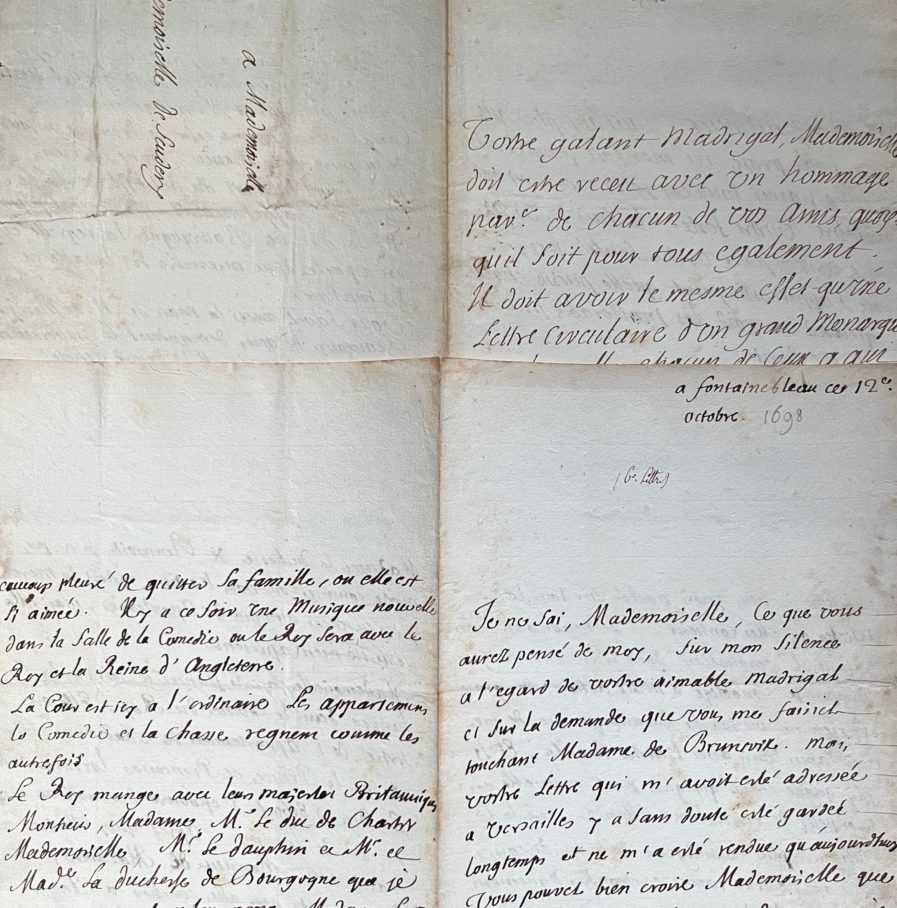 a Mademoiselle
emoiselle de Scudery
Vostre galant Madrigal, Mademoiselle
doit estre receu avec un hommage
par.er de chacun de vos Amis quoy
qu'il soit pour tous egalement.
Il doit avoir le mesme effet qu'une
Lettre Circulaire d'un grand Monarque
chacun de ceux a qui
a fontainebleau ce 12e.
octobre. 1698
(6e. Lettre)
caucoup pleuré de quitter sa famille, ou elle est
si aimée. Il y a ce soir une Musique nouvelle
dans la salle de la Comedie ou le Roy sera avec le
Roy et la Reine d'Angleterre.
La Cour est icy a l'ordinaire Les appartemens
la Comedie et la chasse regnent comme les
autrefois
Le Roy mange avec leurs majestez Britanniques
Monsieur, Madame, Mr. le duc de Chartres
Mademoiselle Mr. le dauphin et Mr. et
Made. la duchesse de Bourgogne que je
Je ne sai, Mademoiselle, Ce que vous
aurez pensé de moy, sur mon silence
a l'egard de vostre aimable madrigal
et sur la demande que vous me faisiez
touchant Madame de Brunsvik. mais
vostre Lettre qui m'avoit esté adressée
a versailles y a sans doute esté gardée
longtemps et ne m'a esté rendue qu'aujourdhuy
Vous pouvez bien croire Mademoiselle que